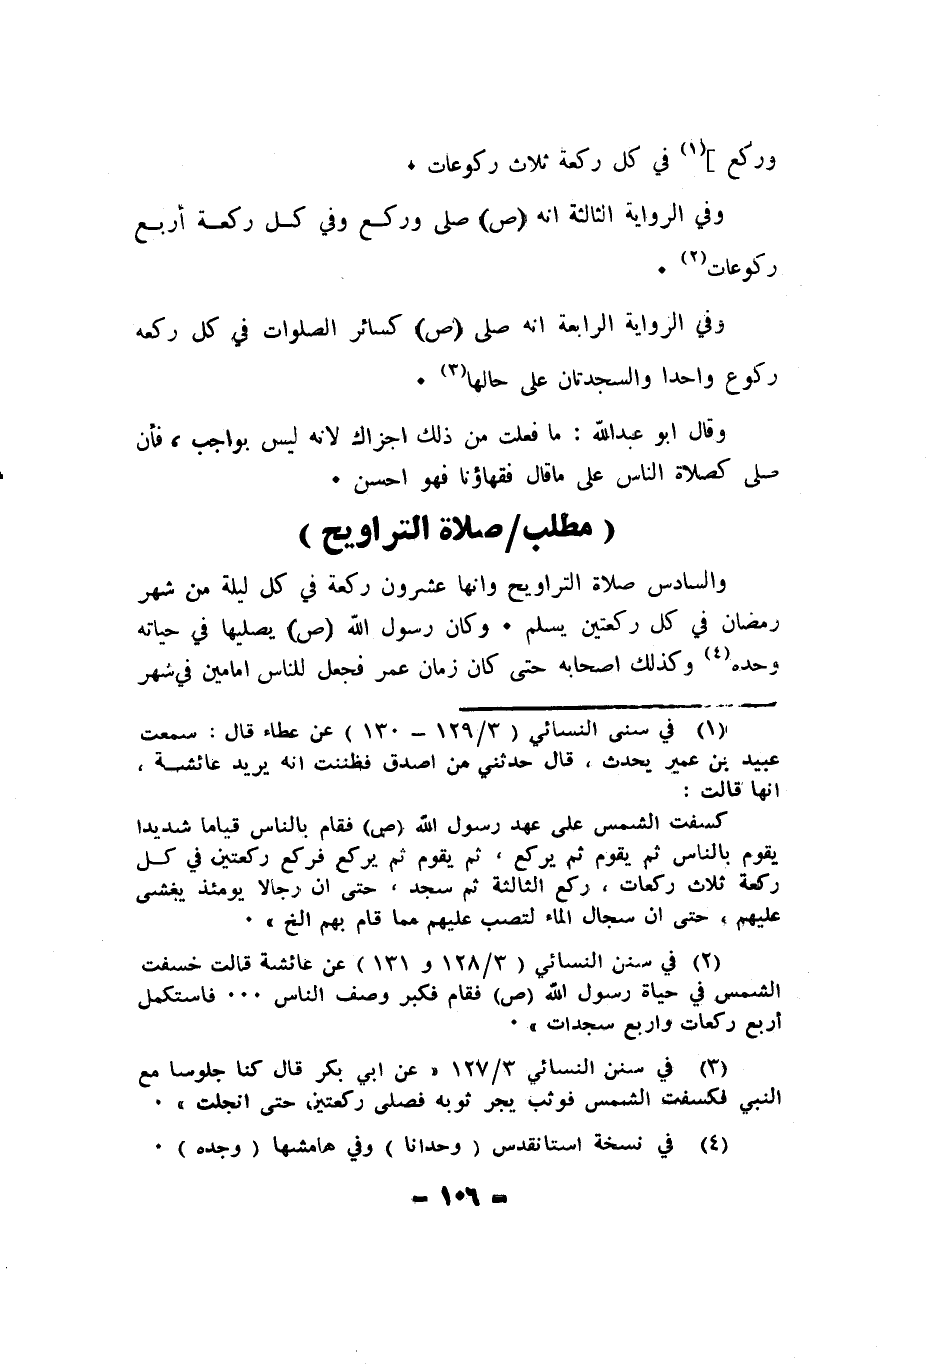 وركع ](١) في كل ركعة ثلاث ركوعات ٠
وفي الرواية الثالثة انه (ص) صلى وركع وفي كل ركعة أربع
ركوعات(٢) ٠
وفي الرواية الرابعة انه صلى (ص) كسائر الصلوات في كل ركعه
ركوع واحدا والسجدتان على حالها(٣) ٠
وقال ابو عبدالله : ما فعلت من ذلك اجزاك لانه ليس بواجب ، فأن
صلى كصلاة الناس على ماقال فقهاؤنا فهو احسن ٠
( مطلب/صلاة التراويح )
والسادس صلاة التراويح وانها عشرون ركعة في كل ليلة من شهر
رمضان في كل ركعتين يسلم ٠ وكان رسول الله (ص) يصليها في حياته
وحده(٤) وكذلك اصحابه حتى كان زمان عمر فجعل للناس امامين في شهر
(١) في سنى النسائي ( ١٢٩/٣ – ١٣٠ ) عن عطاء قال : سمعت
عبيد بن عمير يحدث ، قال حدثني من اصدق فظننت انه يريد عائشة ،
انها قالت :
كسفت الشمس على عهد رسول الله (ص) فقام بالناس قياما شديدا
يقوم بالناس ثم يقوم ثم يركع ، ثم يقوم ثم يركع فركع ركعتين في كل
ركعة ثلاث ركعات ، ركع الثالثة ثم سجد ، حتى ان رجالا يومئذ يغشى
عليهم ، حتى ان سجال الماء لتصب عليهم مما قام بهم الخ » ٠
(٢) في سنن النسائي ( ١٢٨/٣ و ١٣١ ) عن عائشة قالت خسفت
الشمس في حياة رسول الله (ص) فقام فكبر وصف الناس ٠٠٠ فاستكمل
أربع ركعات واربع سجدات » ٠
(٣) في سنن النسائي ١٢٧/٣ « عن ابي بكر قال كنا جلوسا مع
النبي فكسفت الشمس فوثب يجر ثوبه فصلى ركعتين حتى انجلت » ٠
(٤) في نسخة استانقدس ( وحدانا ) وفي هامشها ( وجده ) ٠
– ١٠٦ –